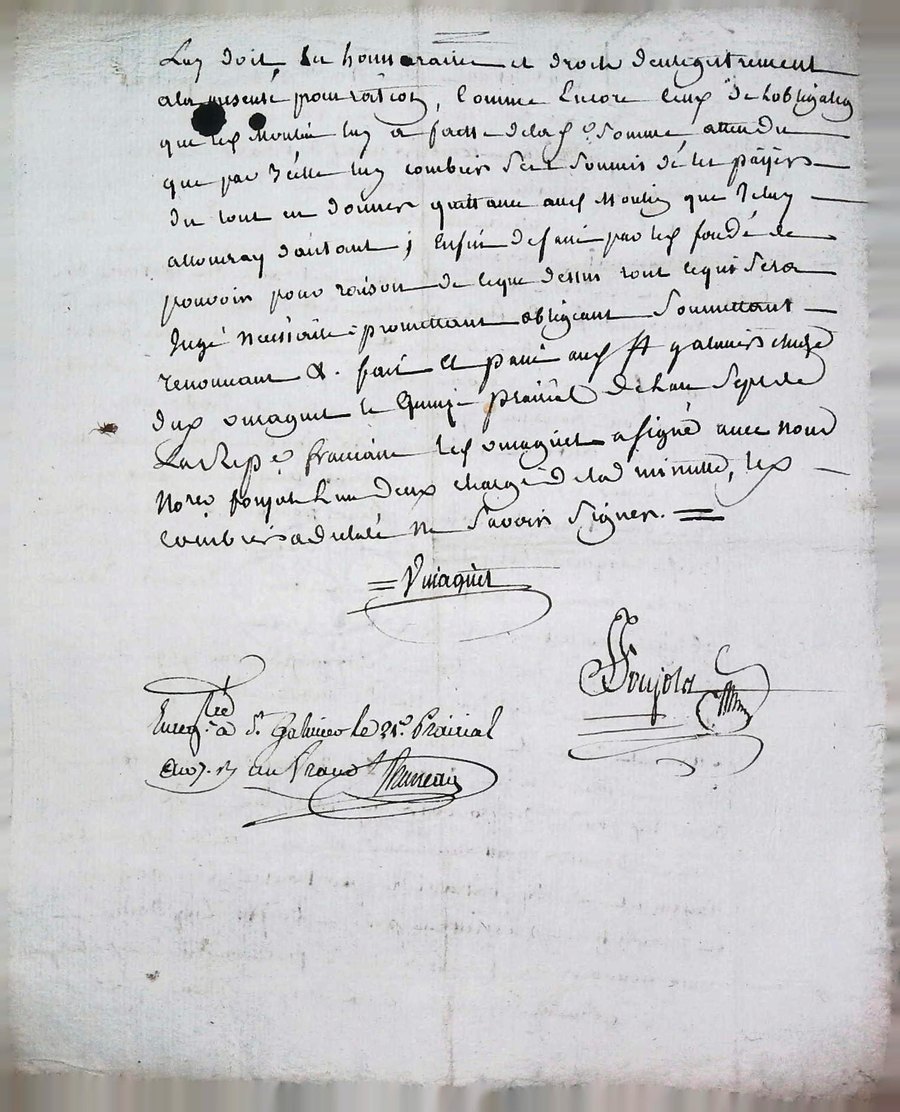 Luy doit les honnoraires et droits denregistrement
a la presente procuration, Comme Encore Ceux de Lobligation
que led. Moulin luy a faitte de lad. somme attendu
que par Icelle luy combier s'est soumis de les payer
du tout en donner quittance aud. Moulin que Icelluy
allouera d'autant; Enfin de faire par led. fondé de
pouvoir pour raison de ce que dessus tout ce qui sera
Jugé Necessaire promettant obligeant Soumettant
renonçant &. fait Et passé aud. St galmier chez le
dit vmaguet le Quinze prairial de l'an Sept de
La Rep.e francaise led. vmaguet a signé avec nous
No.re soujol L'un deux chargé de la minutte, led.
Combier a declaré Ne Savoir Signer.
Vmaguet
Soujol
Enreg.trée à St. Galmier le 21e. Prairial
an 7. R un franc